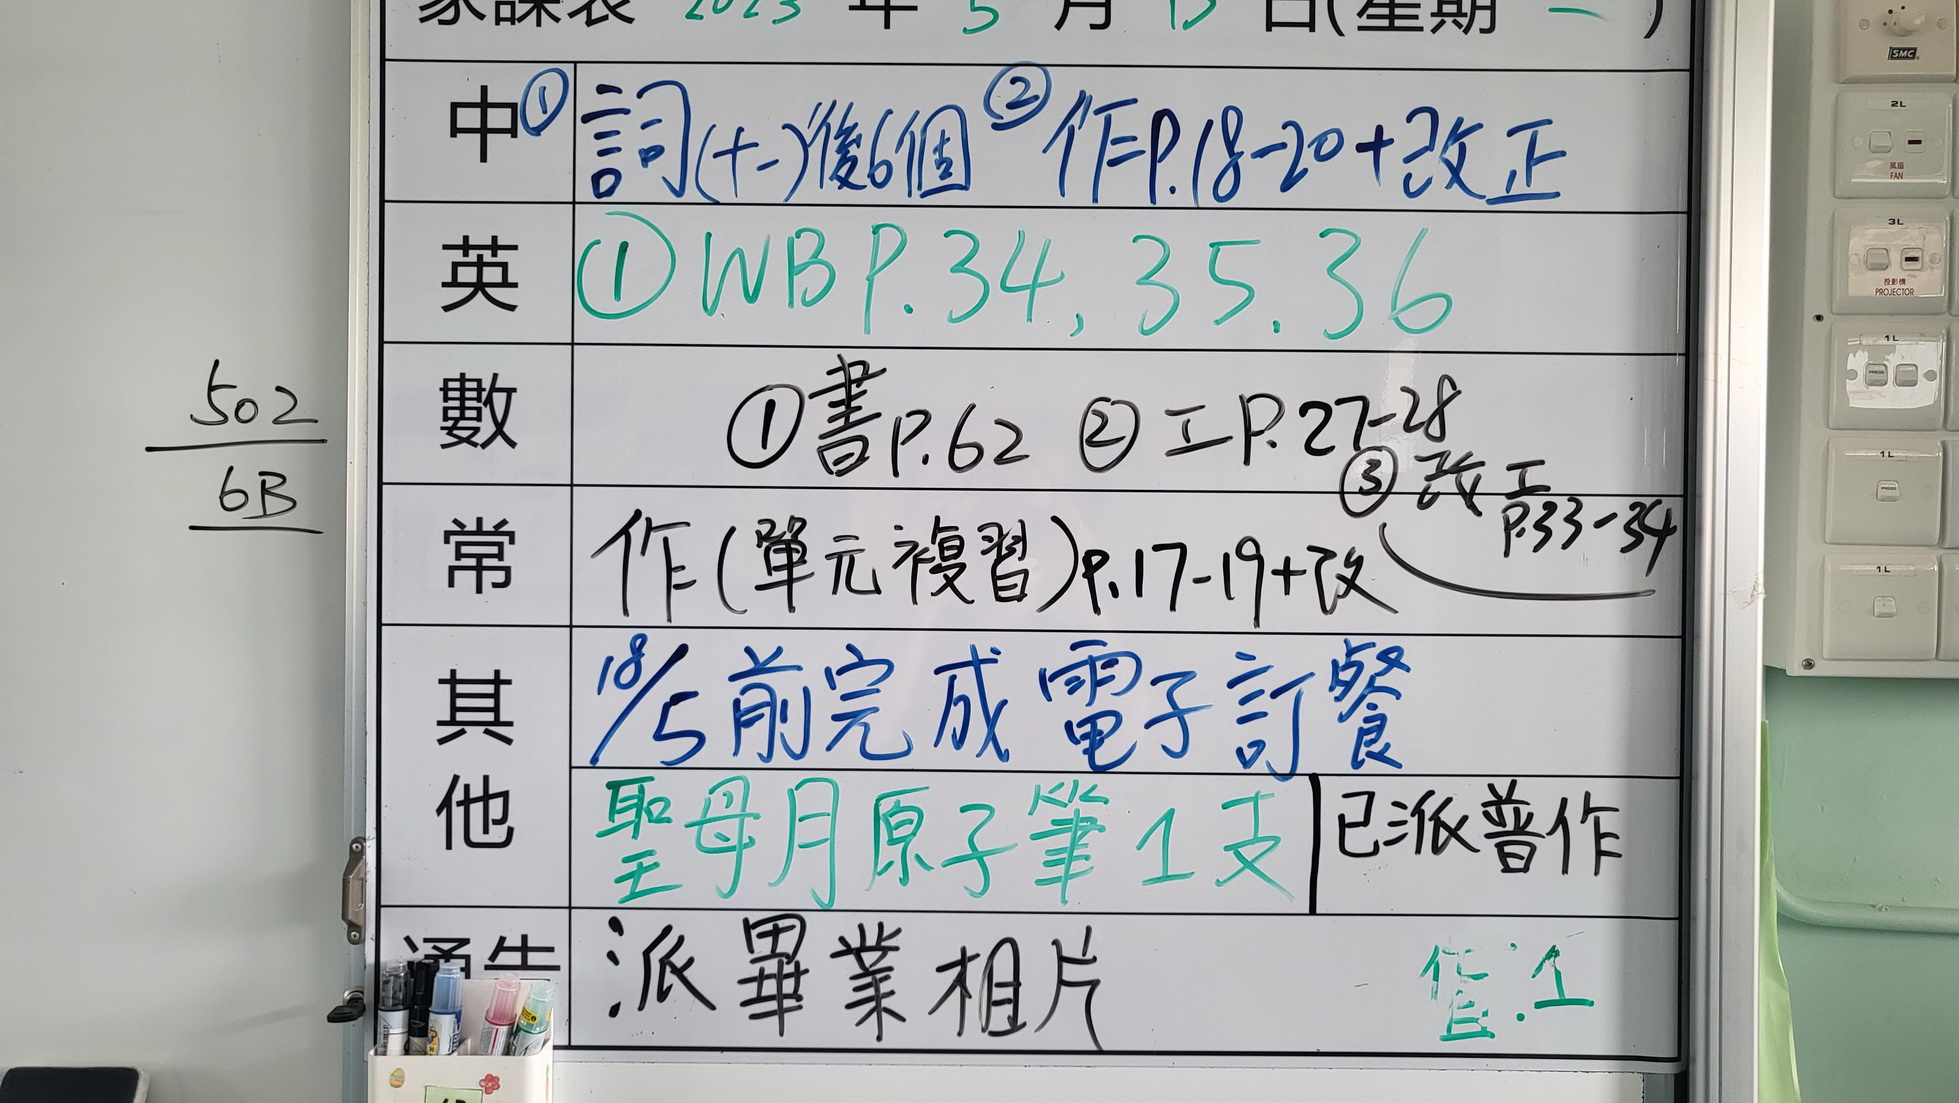 家課表 2023 年 5 月 15 日(星期 一 )
中 ① 詞(十一)後6個 ② 作P.18-20+改正
英 ① WB P.34, 35. 36
數 ① 書P.62 ② 工P.27-28
③ 改工
P.33-34
常 作(單元複習)P.17-19+改
其他 18/5前完成電子訂餐
聖母月原子筆1支 已派普作
通告 派畢業相片 值:1
502
6B
SMC
2L
風扇
FAN
3L
投影機
PROJECTOR
1L
PRESS
1L
PRESS
1L